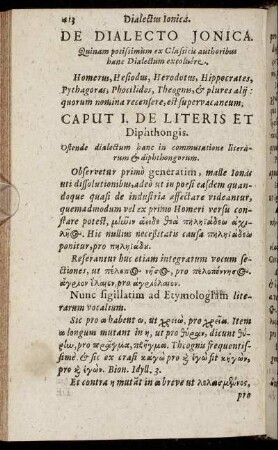 413 Dialectus Ionicá.
DE DIALECTO JONICA.
Quinam potissimum ex Classicis authoribus
hanc Dialectum excoluêre.
Homerus, Hesiodus, Herodotus, Hippocrates,
Pythagoras, Phocilides, Theognis, & plures alij:
quorum nomina recensere, est supervacaneum.
CAPUT I. DE LITERIS ET
Diphthongis.
Ostende dialectum hanc in commutatione literarum & diphthongorum.
Observetur primò generatim, malle Iones
uti dissolutionibus, adeò ut in poësi easdem quandoque quasi de industria affectare videantur,
quemadmodum vel ex primo Homeri versu constare potest, μῆνιν ἄειδε θεὰ πηληϊάδεω ἀχιλῆος. Hîc nullius necessitatis causa πηληϊάδεω
ponitur, pro πηληιάδου.
Referantur huc etiam integratum vocum sectiones, ut
Nunc sigillatim ad Etymologiam literarum vocalium.
Sic pro α habent ω, ut
Item
α longum mutant in η, ut pro
dicunt
pro πρᾶγμα, πρῆγμα. Theognis frequentissimè. & sic ex crasi
pro
Bion. Idyll. 3.
Et contra η mutāt in α breve ut
pro